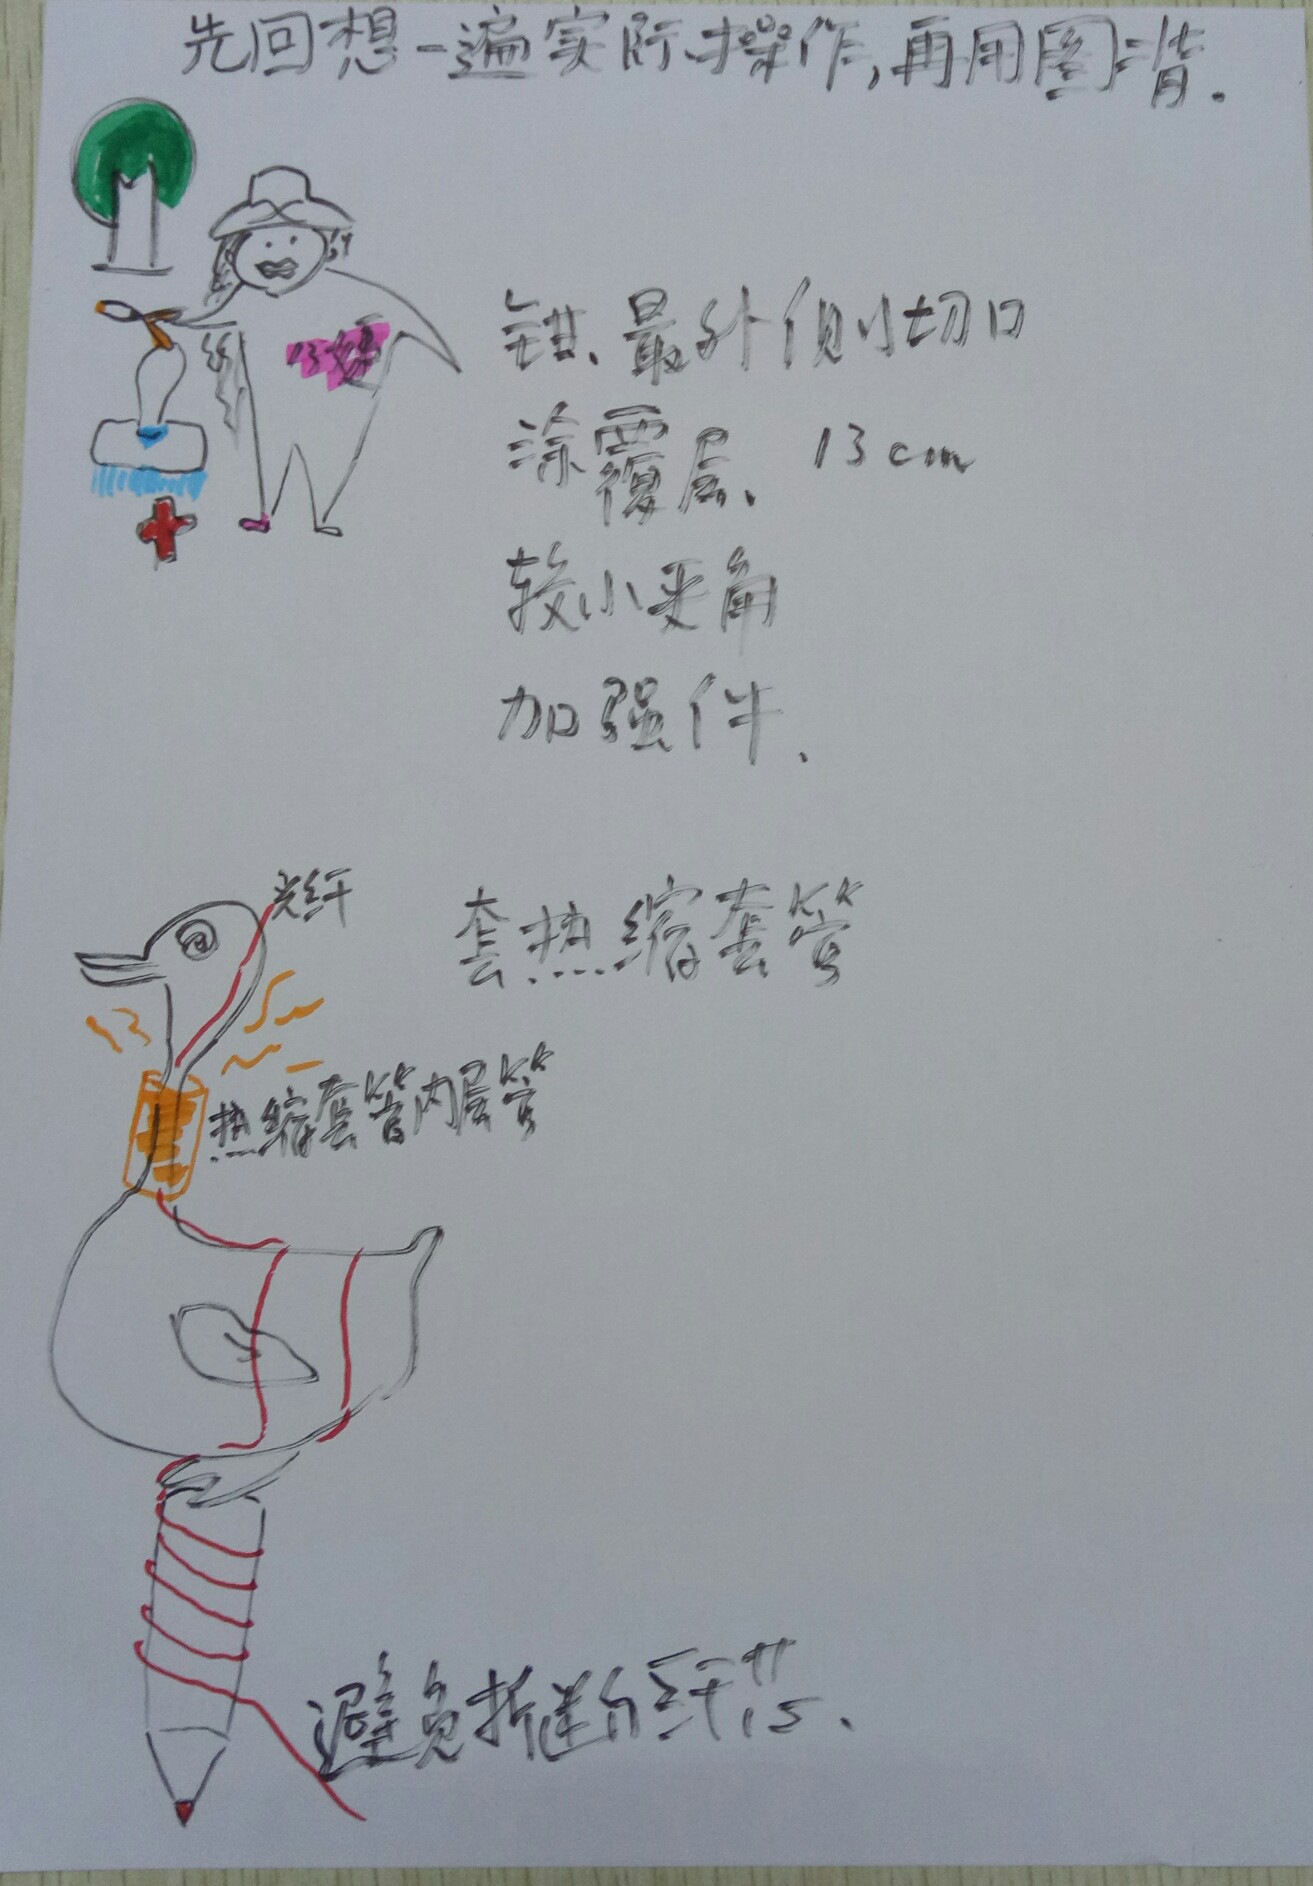 先回想一遍实际操作,再用图背.
13妈
钳、最外侧切口
涂覆层、 13cm
较小夹角
加强件、
光纤
套热缩套管
13
热缩套管内层管
避免折断纤芯、